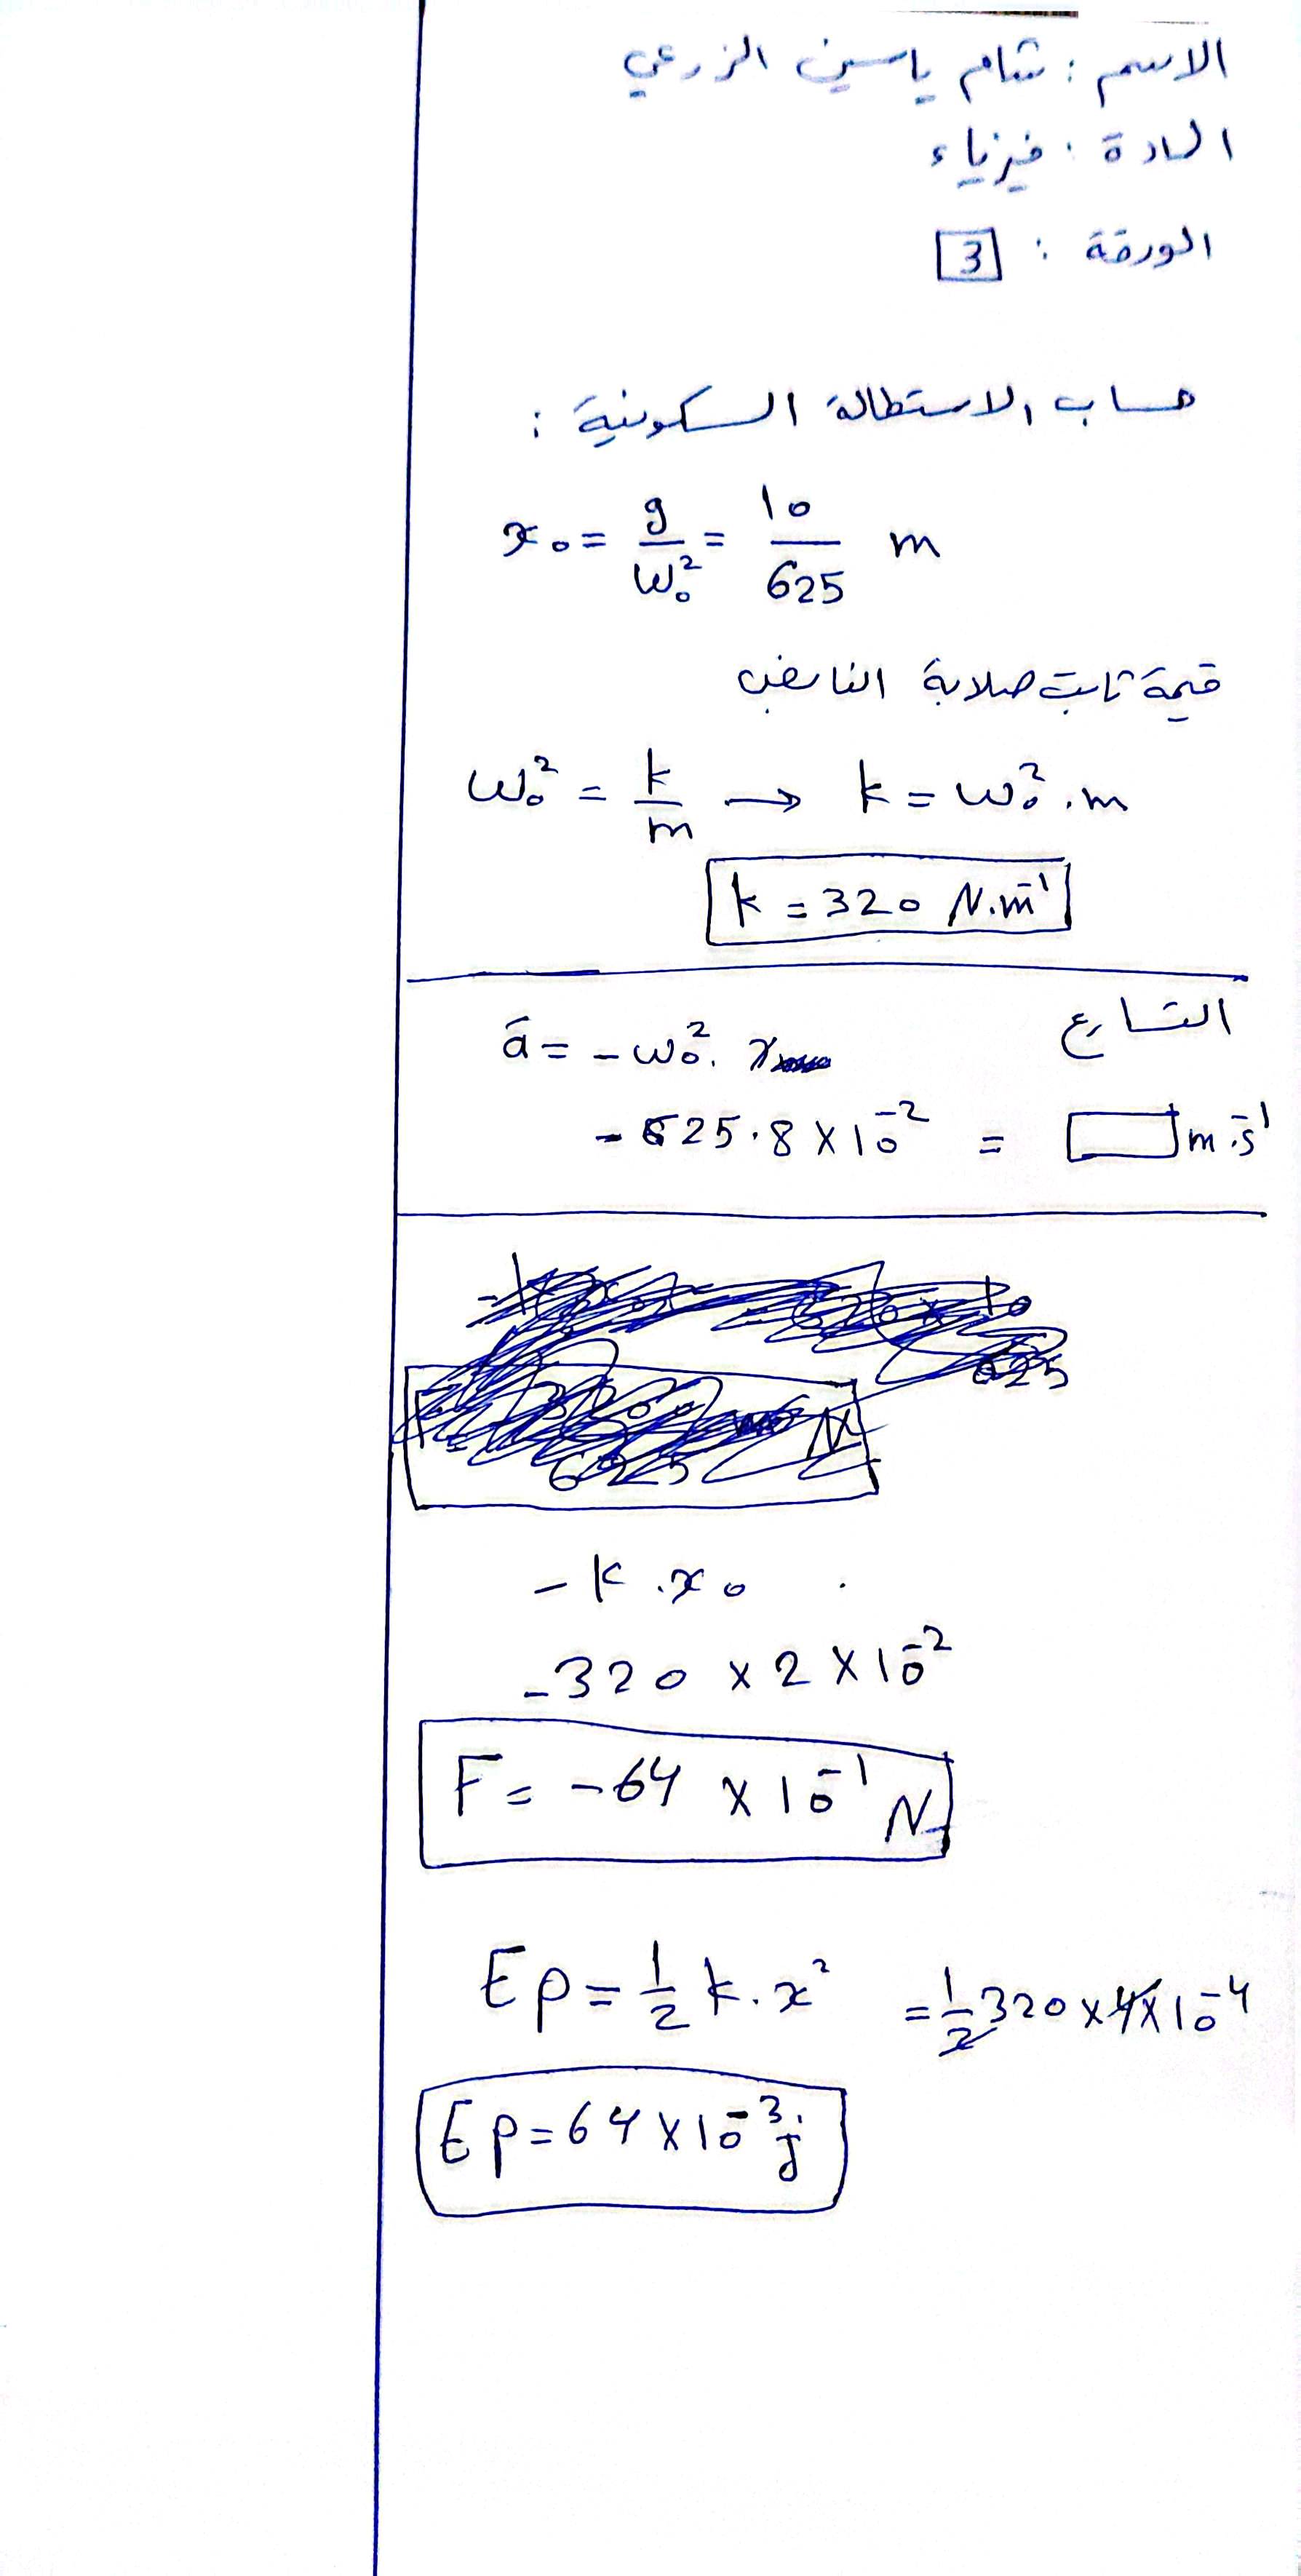 الاسم : شام ياسين الزرعي
المادة : فيزياء
الورقة : 3
حساب الاستطالة السكونية :
x₀ = g/ω₀² = 10/625 m
قيمة ثابت صلابة النابض
ω₀² = k/m → k = ω₀² . m
k = 320 N.m⁻¹
التسارع
ā = - ω₀² . x
- 625 . 8 × 10⁻² = □ m.s⁻¹
- k . x₀
- 320 × 2 × 10⁻²
F = - 64 × 10⁻¹ N
Ep = 1/2 k . x² = 1/2 320 × 4 × 10⁻⁴
Ep = 64 × 10⁻³ j